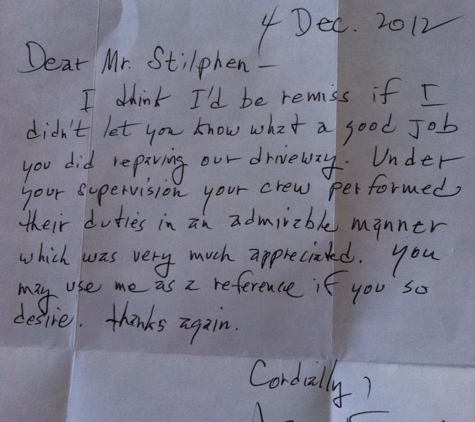 4 Dec. 2012
Dear Mr. Stilphen –
I think I'd be remiss if I
didn't let you know what a good job
you did repaving our driveway. Under
your supervision your crew performed
their duties in an admirable manner
which was very much appreciated. You
may use me as a reference if you so
desire. Thanks again.
Cordially,